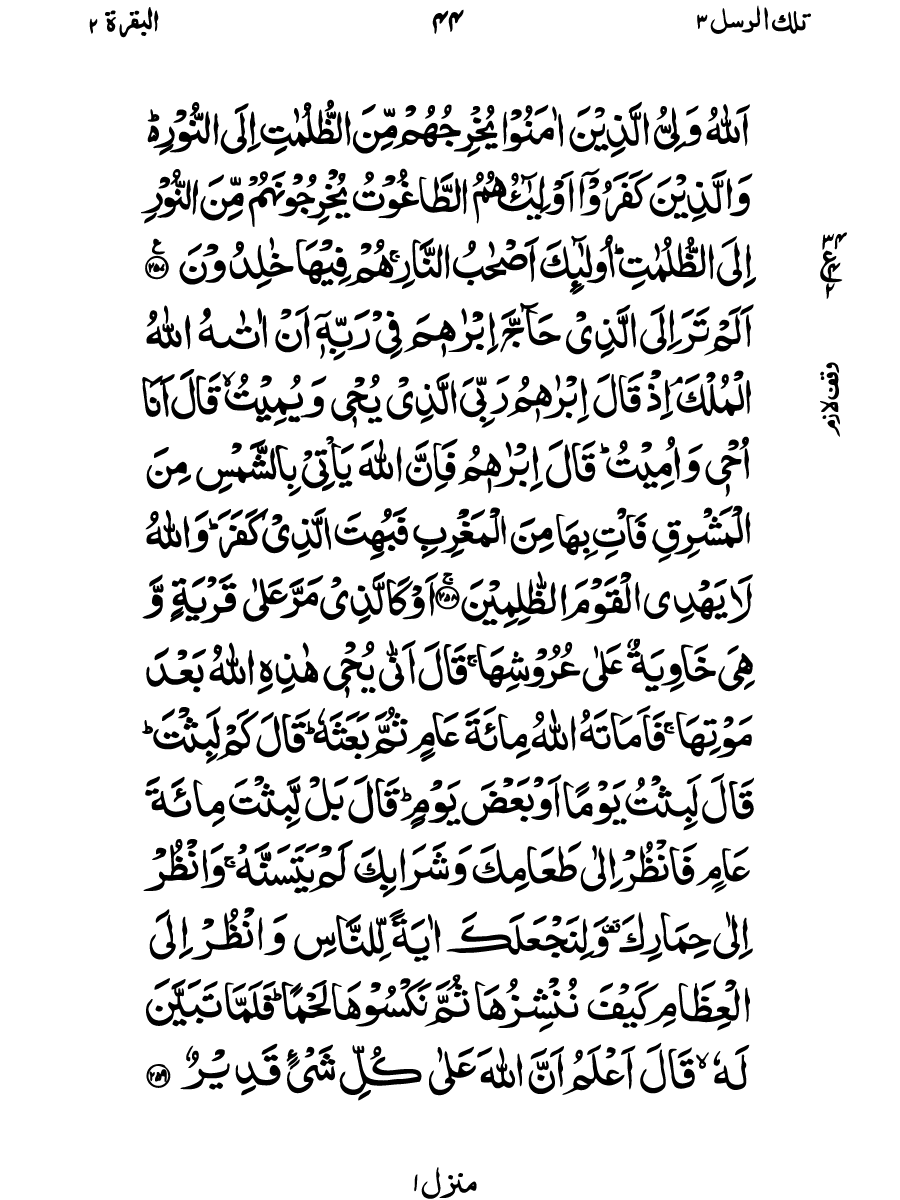 تلك الرسل ٣ ۴۴ البقرة ٢
اَللّٰهُ وَلِىُّ الَّذِيْنَ اٰمَنُوْا يُخْرِجُهُمْ مِّنَ الظُّلُمٰتِ اِلَى النُّوْرِؕ
وَالَّذِيْنَ كَفَرُوْۤا اَوْلِيٰٓـــُٔهُمُ الطَّاغُوْتُ يُخْرِجُوْنَهُمْ مِّنَ النُّوْرِ
اِلَى الظُّلُمٰتِؕ اُولٰٓئِكَ اَصْحٰبُ النَّارِۚ هُمْ فِيْهَا خٰلِدُوْنَ ۧ‏﴿۲۵۷﴾
اَلَمْ تَرَ اِلَى الَّذِىْ حَآجَّ اِبْرٰهٖمَ فِىْ رَبِّهٖۤ اَنْ اٰتٰٮهُ اللّٰهُ
الْمُلْكَۘ اِذْ قَالَ اِبْرٰهٖمُ رَبِّىَ الَّذِىْ يُحْىٖ وَيُمِيْتُۙ قَالَ اَنَا
اُحْىٖ وَاُمِيْتُؕ قَالَ اِبْرٰهٖمُ فَاِنَّ اللّٰهَ يَاْتِىْ بِالشَّمْسِ مِنَ
الْمَشْرِقِ فَاْتِ بِهَا مِنَ الْمَغْرِبِ فَبُهِتَ الَّذِىْ كَفَرَؕ وَاللّٰهُ
لَا يَهْدِى الْقَوْمَ الظّٰلِمِيْنَۚ‏﴿۲۵۸﴾ اَوْ كَالَّذِىْ مَرَّ عَلٰى قَرْيَةٍ وَّ
هِىَ خَاوِيَةٌ عَلٰى عُرُوْشِهَاۚ قَالَ اَنّٰى يُحْىٖ هٰذِهِ اللّٰهُ بَعْدَ
مَوْتِهَاۚ فَاَمَاتَهُ اللّٰهُ مِائَةَ عَامٍ ثُمَّ بَعَثَهٗؕ قَالَ كَمْ لَبِثْتَؕ
قَالَ لَبِثْتُ يَوْمًا اَوْ بَعْضَ يَوْمٍؕ قَالَ بَلْ لَّبِثْتَ مِائَةَ
عَامٍ فَانْظُرْ اِلٰى طَعَامِكَ وَشَرَابِكَ لَمْ يَتَسَنَّهْۚ وَانْظُرْ
اِلٰى حِمَارِكَࣞ وَلِنَجْعَلَكَ اٰيَةً لِّلنَّاسِ وَانْظُرْ اِلَى
الْعِظَامِ كَيْفَ نُنْشِزُهَا ثُمَّ نَكْسُوْهَا لَحْمًاؕ فَلَمَّا تَبَيَّنَ
لَهٗۙ قَالَ اَعْلَمُ اَنَّ اللّٰهَ عَلٰى كُلِّ شَىْءٍ قَدِيْرٌ‏﴿۲۵۹﴾
وقف لازم
منزل ١